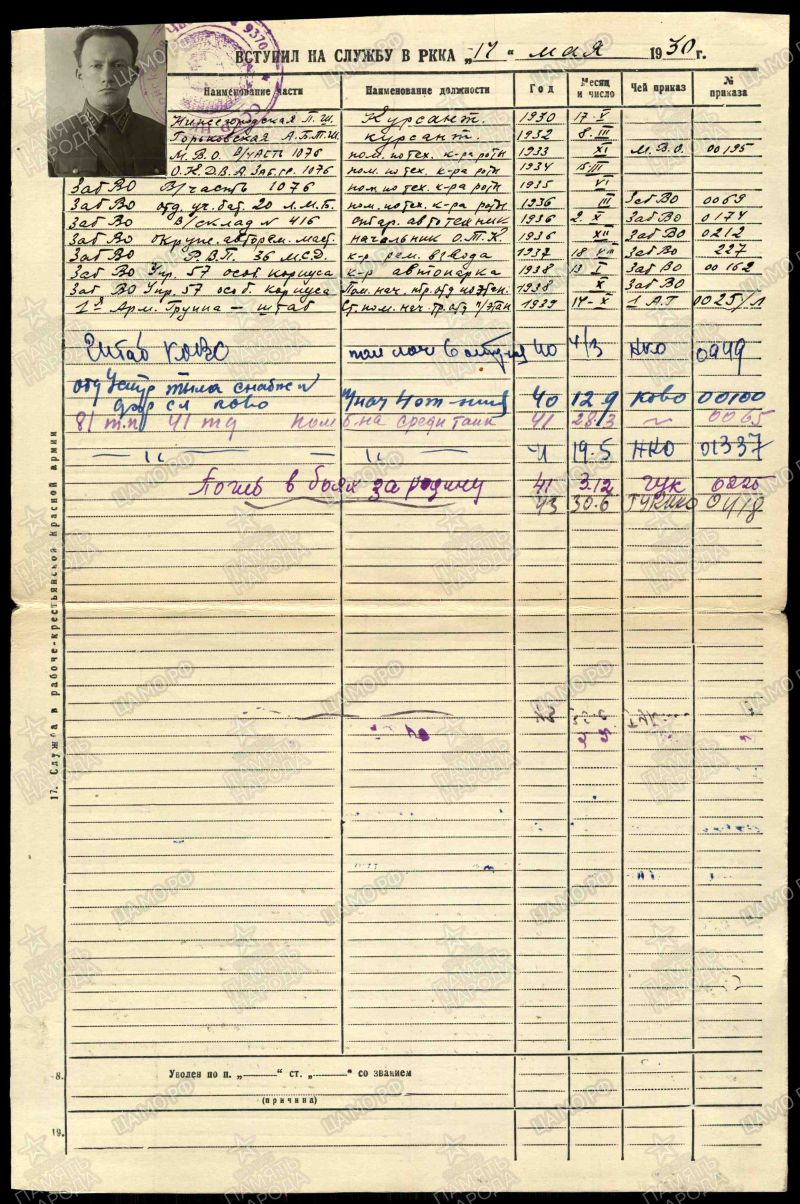 ВСТУПИЛ НА СЛУЖБУ В РККА „17“ мая 1930 г.
Наименование части Наименование должности Год Месяц и число Чей приказ № приказа
Нижегородская П.Ш. Курсант. 1930 17-V
Горьковская А.Б.Т.Ш. курсант. 1932 8.III
М.В.О. В/часть 1076 пом. по тех. к-ра роты 1933 XI М.В.О. 00195
О.К.Д.В.А. Заб.гр. 1076 пом. по тех. к-ра роты 1934 15.III
Заб ВО В/часть 1076 пом. по тех. к-ра роты 1935 VI
Заб ВО отд. уч. бат. 20 л.м.б. пом. по тех. к-ра роты 1936 III Заб ВО 0069
Заб ВО В/склад N 416 автотехник 1936 2.X Заб ВО 0174
Заб ВО окружн. авторем. маст. начальник О.Т.К. 1936 XII Заб ВО 0212
Заб ВО Р.В.П. 36 М.С.Д. к-р рем. взвода 1937 18 Заб ВО 227
Заб ВО Упр. 57 особ корпуса к-р автопарка 1938 13 I Заб ВО 00162
Заб ВО Упр. 57 особ. корпуса Пом. нач. 1938 X Заб ВО
1я Арм. Группа — штаб Ст. пом. нач. 1939 17-X 1 А.Г 0025/л
Штаб КОВО пом нач 6 40 4/3 НКО 0949
отд тыла снабжен
КОВО 40 12.9 КОВО 00100
81 т.п. 41 тд пом 41 28.3 ~ 0065
— " — — " — 41 19.5 НКО 01337
Погиб в боях за родину 41 3.12 ГУК 0220
43 30.6 ГУКНКО 0418
17. Служба в рабоче-крестьянской Красной армии
18. Уволен по п. „——“ ст. „——“ со званием
(причина)
19.
ЦАМО.РФ
ПАМЯТЬ НАРОДА